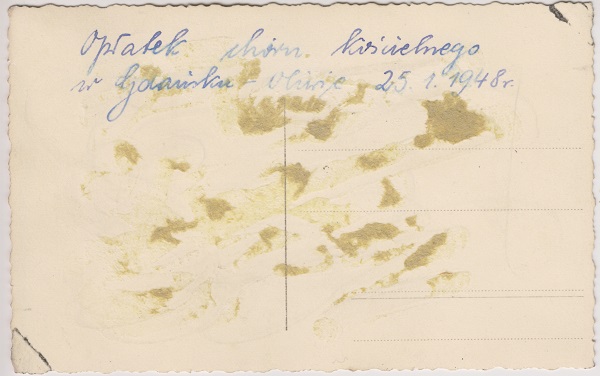 Opłatek chóru kościelnego
w Gdańsku-Oliwie 25.1.1948r.